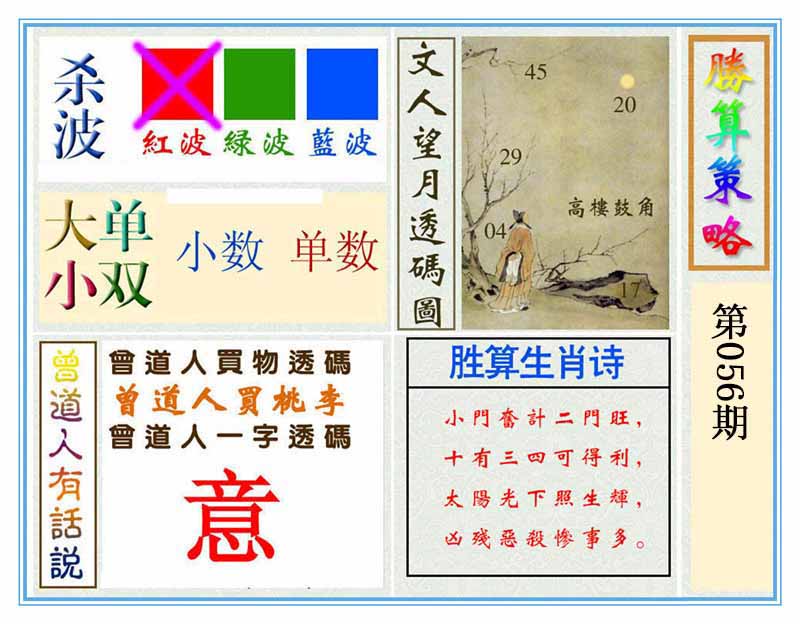 杀波
紅波
緑波
藍波
大单
小双
小数
单数
文人望月透碼圖
45
20
29
高樓鼓角
04
17
勝算策略
第056期
曾道人有話説
曾道人買物透碼
曾道人買桃李
曾道人一字透碼
意
胜算生肖诗
小門奮計二門旺，
十有三四可得利，
太陽光下照生輝，
凶殘惡殺慘事多。